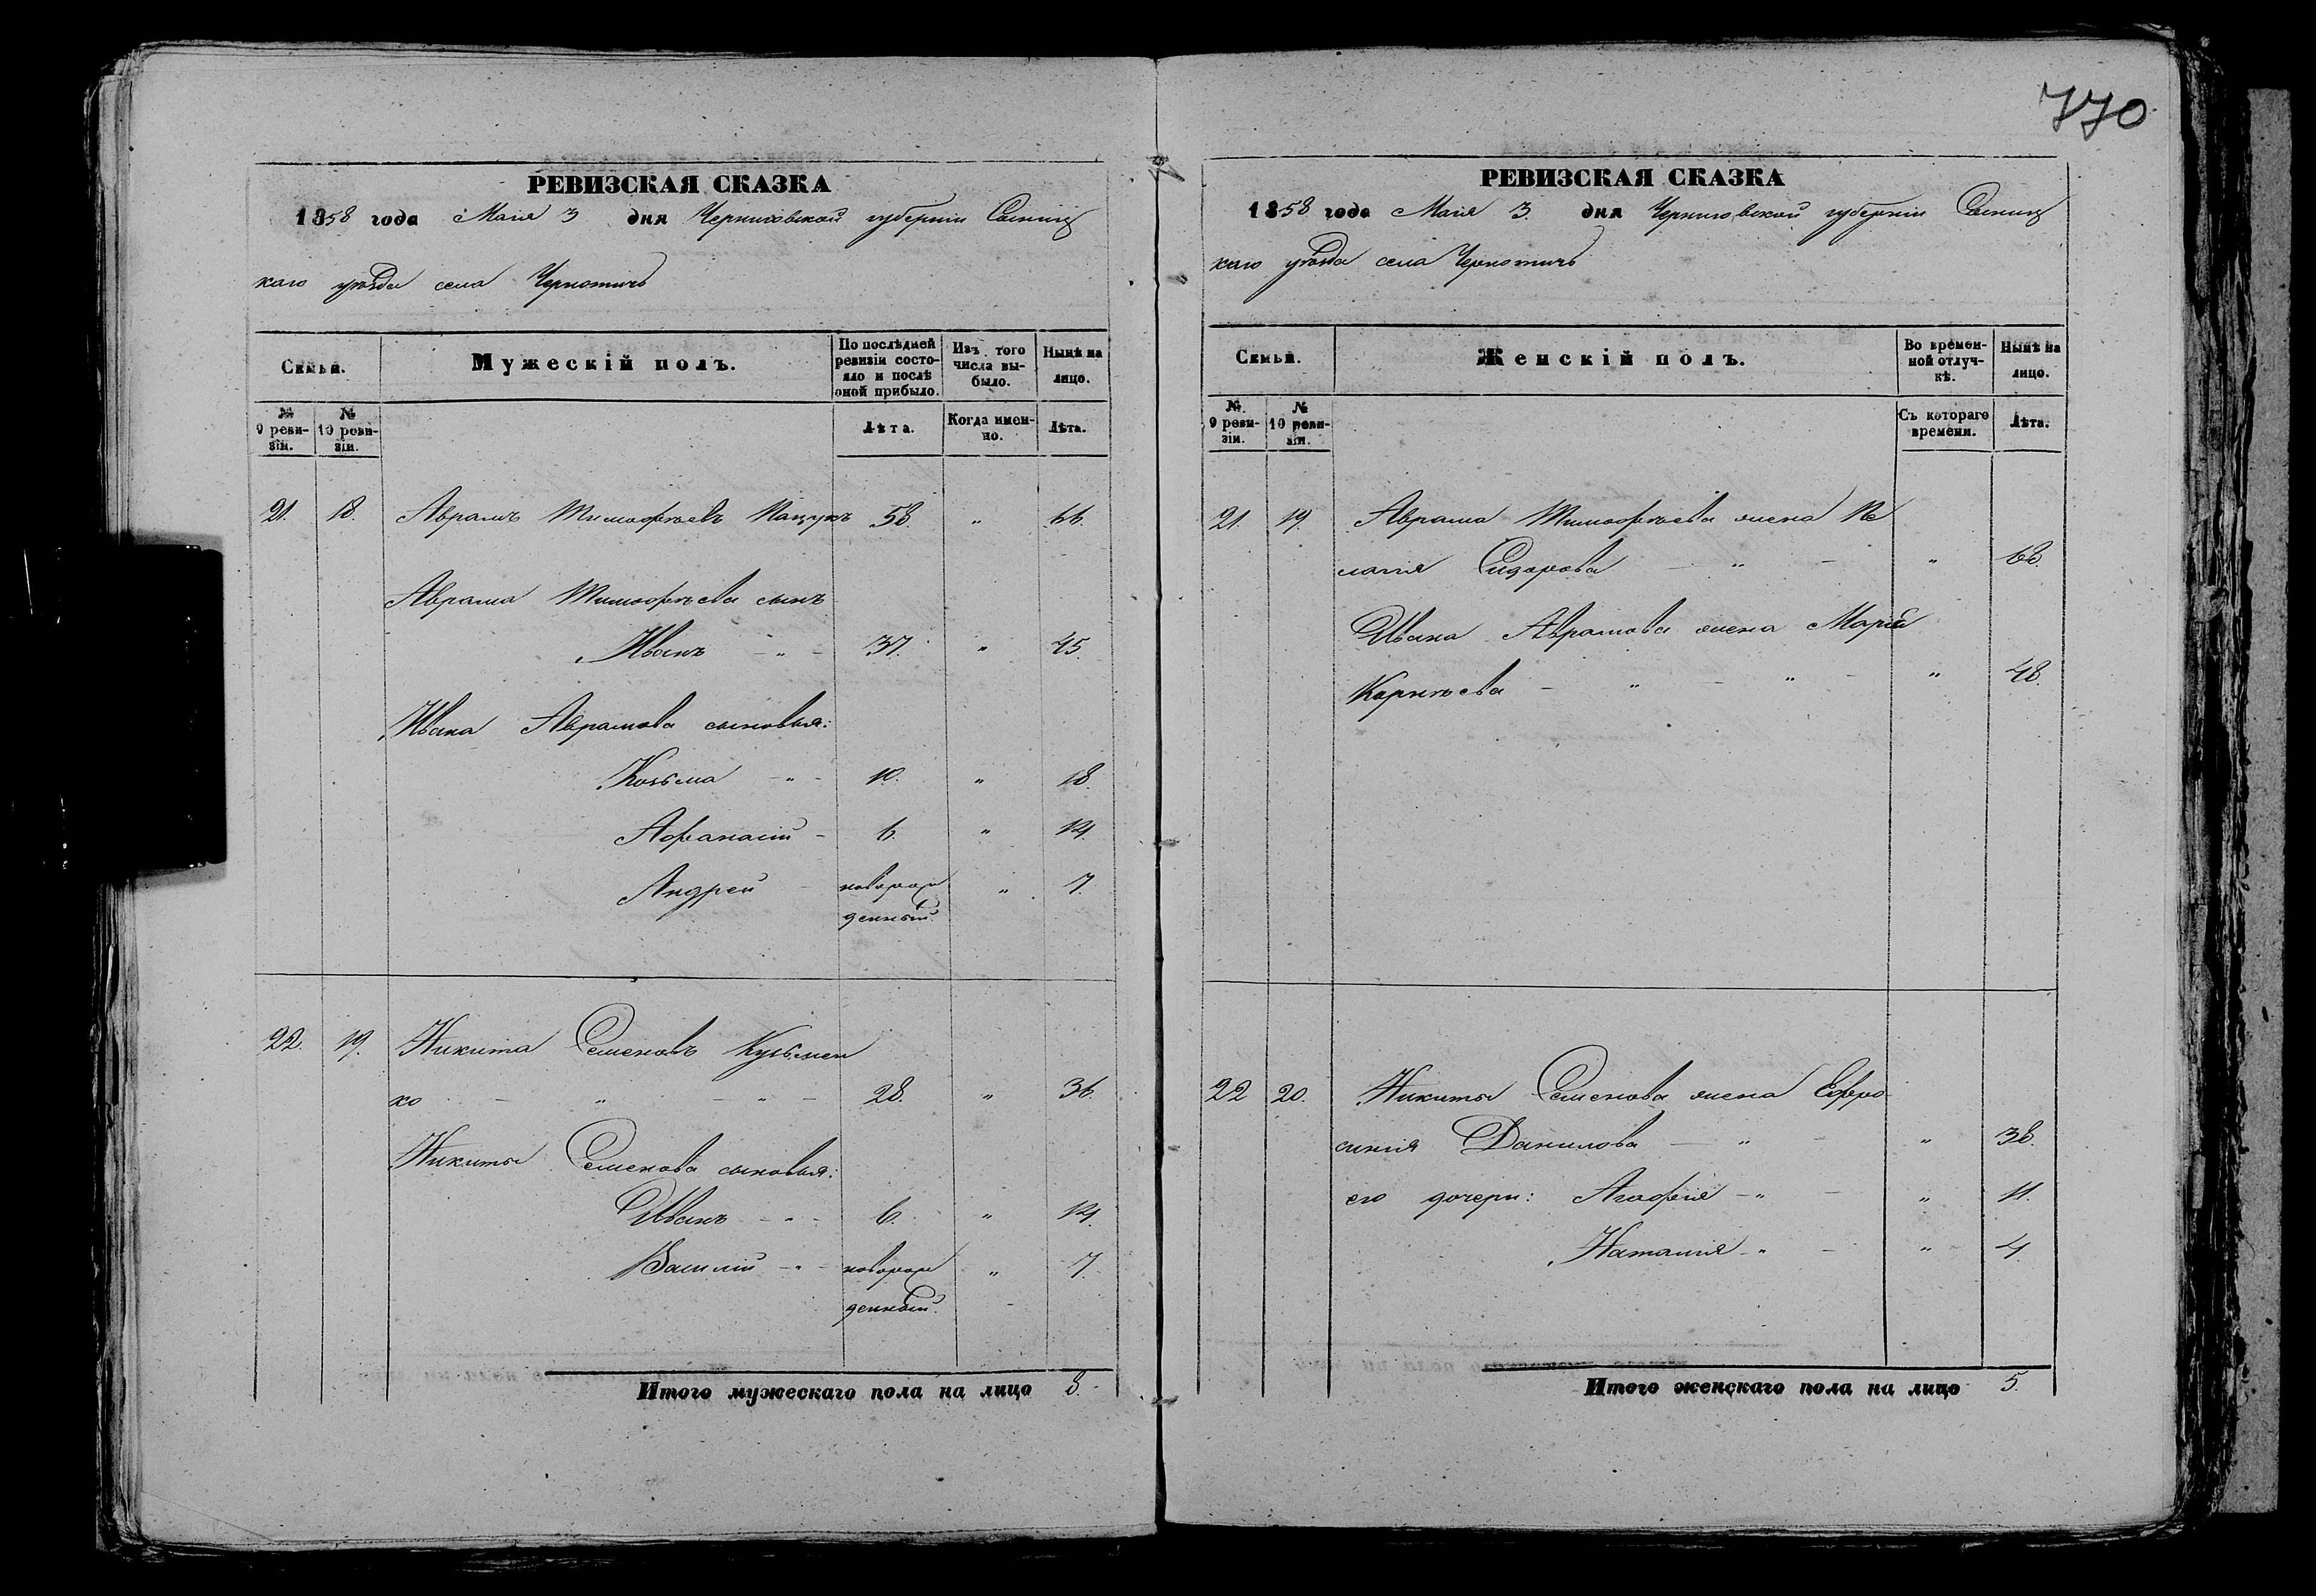 770
РЕВИЗСКАЯ СКАЗКА
1858 года Маія 3 дня Черниговской губерніи Сосниц
каго уѣзда села Чернотичъ
Семьи.
Мужескій полъ.
По послѣдней ревизіи состояло и послѣ оной прибыло.
Изъ того числа выбыло.
Нынѣ на лицо.
№ 9 ревизіи.
№ 10 ревизіи.
Лѣта.
Когда именно.
Лѣта.
21. 18. Аврамъ Тимофѣевъ Пацукъ 58. " 66.
Аврама Тимофѣева сынъ
Иванъ - " - 37. " 45.
Ивана Аврамова сыновья:
Козьма - " - 10. " 18.
Афанасій - 6. " 14.
Андрей - новорож " 7.
денный.
22. 19. Никита Семеновъ Кузьмен
ко - " - " - 28. " 36.
Никиты Семенова сыновья:
Иванъ - " - 6. " 14.
Василій - " - новорож " 7.
денный.
Итого мужескаго пола на лицо 8.
РЕВИЗСКАЯ СКАЗКА
1858 года Маія 3. дня Черниговской губерніи Сосниц
каго уѣзда села Чернотичъ
Семьи.
Женскій полъ.
Во временной отлучкѣ.
Нынѣ на лицо.
№ 9 ревизіи.
№ 10 ревизіи.
Съ котораго времени.
Лѣта.
21. 19. Аврама Тимофѣева жена Пе
лагія Сидорова - " - " 68.
Ивана Аврамова жена Марія
Корнѣева - " - " - " 48.
22 20. Никиты Семенова жена Евфро
синія Данилова - " - " 38.
его дочери: Агафія - " - " 11.
Наталія - " - " 4.
Итого женскаго пола на лицо 5.